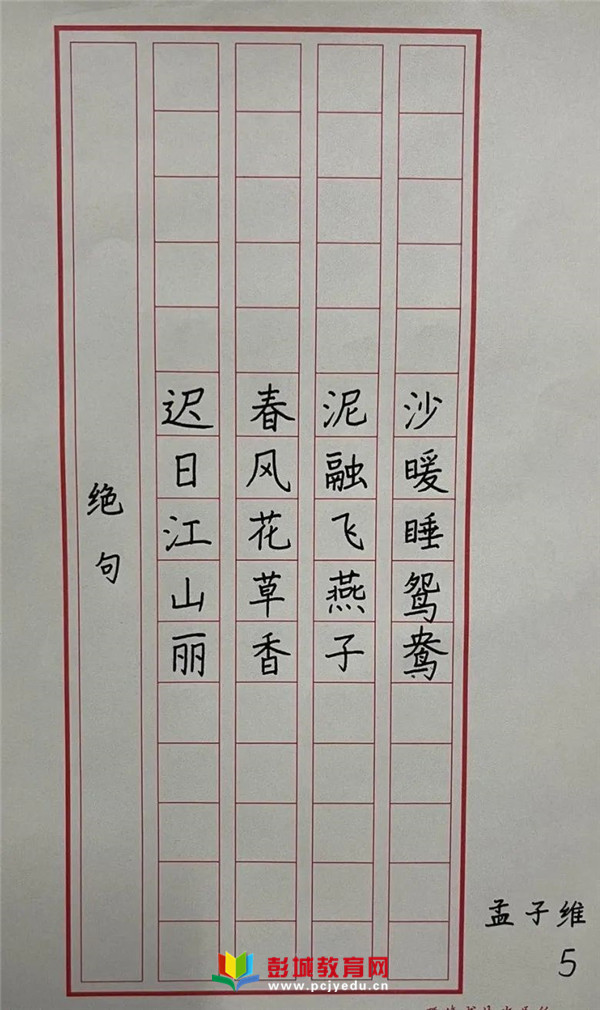 绝句
迟日江山丽
春风花草香
泥融飞燕子
沙暖睡鸳鸯
孟子维
5
彭城教育网
www.pcjyedu.cn